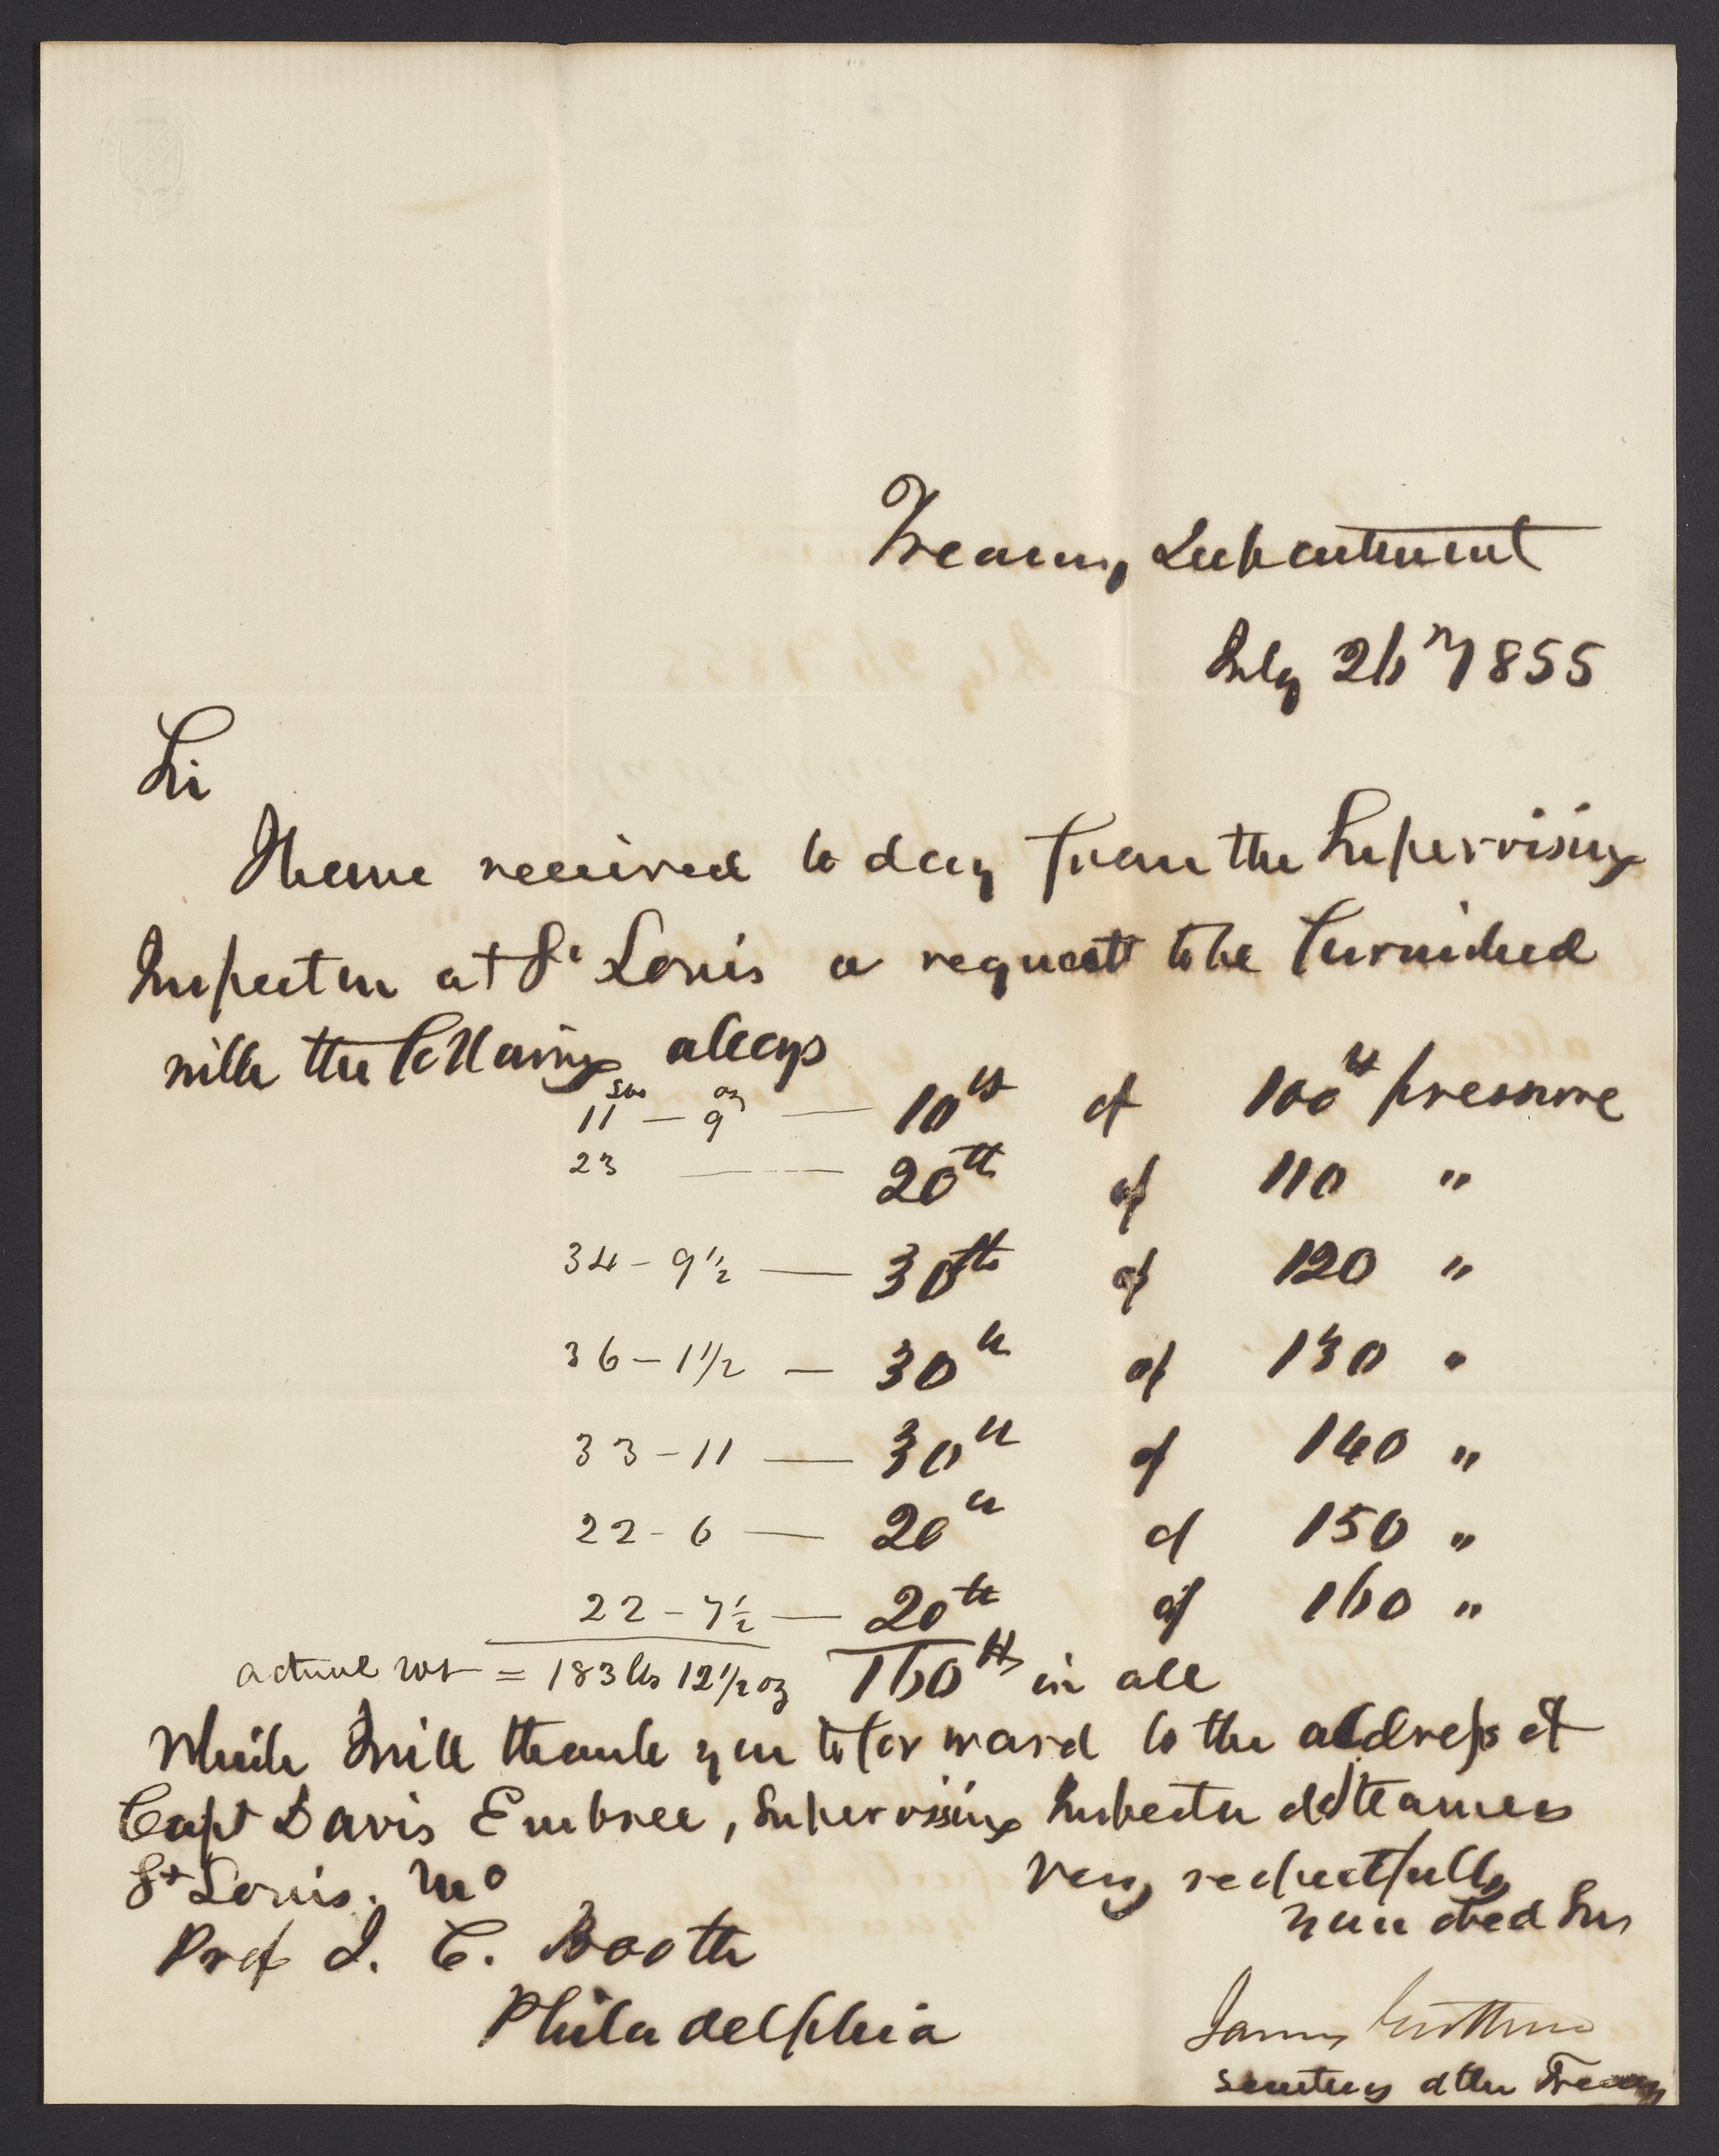 Treasury Department
July 26th 1855
Sir
I have received to day from the Supervising
Inspector at St Louis a request to be furnished
with the following alloys
11 lbs — 9 oz — 10 lbs of 100 lbs pressure
23 — 20 lbs of 110 "
34 - 9 1/2 — 30 lbs of 120 "
36 - 1 1/2 — 30 lbs of 130 "
33 - 11 — 30 lbs of 140 "
22 - 6 — 20 lbs of 150 "
22 - 7 1/2 — 20 lbs of 160 "
actual wt = 183 lbs 12 1/2 oz 160 lbs in all
Which I will thank you to forward to the address of
Capt Davis Embree, Supervising Inspector of Steamers
St Louis. Mo
Very respectfully
Your obed Srv
Prof J. C. Booth
Philadelphia
James Guthrie
Secretary of the Treasury